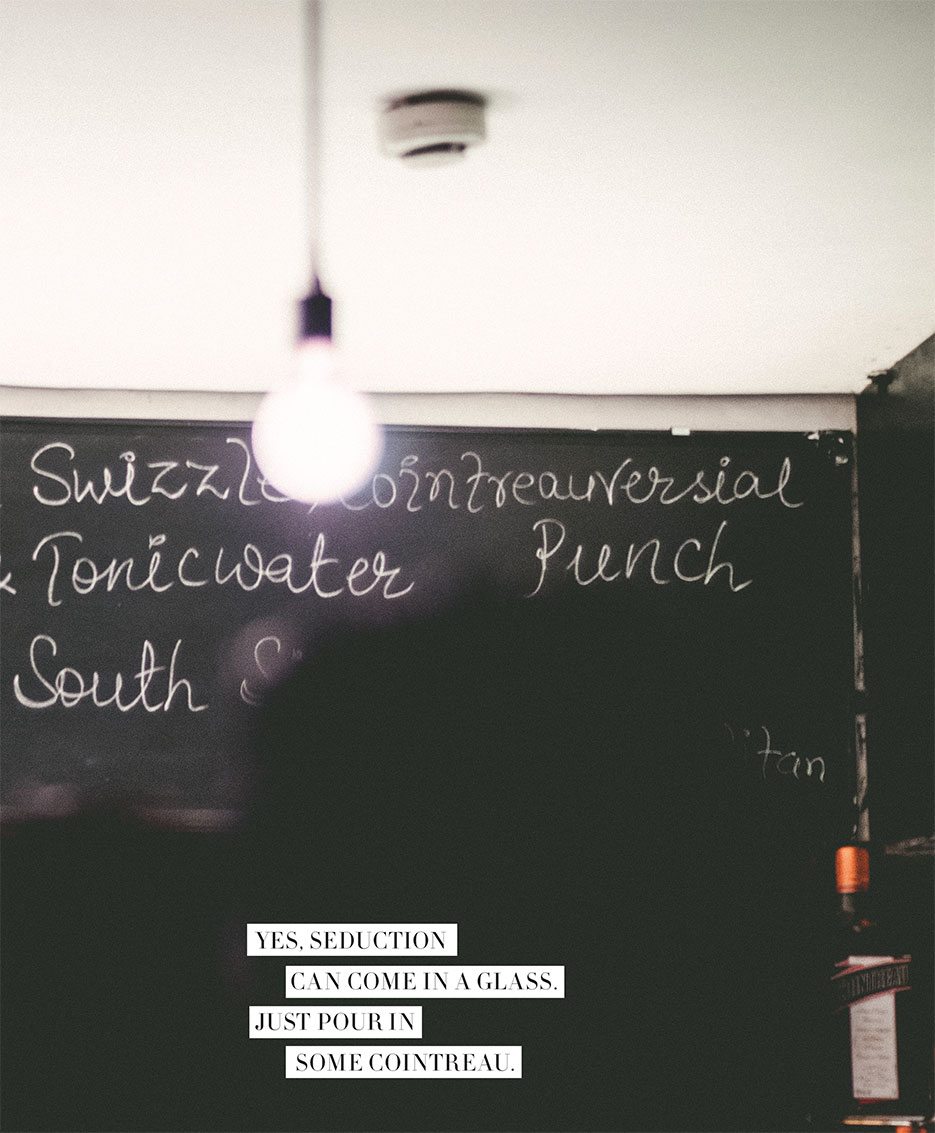 Swizzle Cointreauversial
& Tonicwater Punch
South
YES, SEDUCTION
CAN COME IN A GLASS.
JUST POUR IN
SOME COINTREAU.